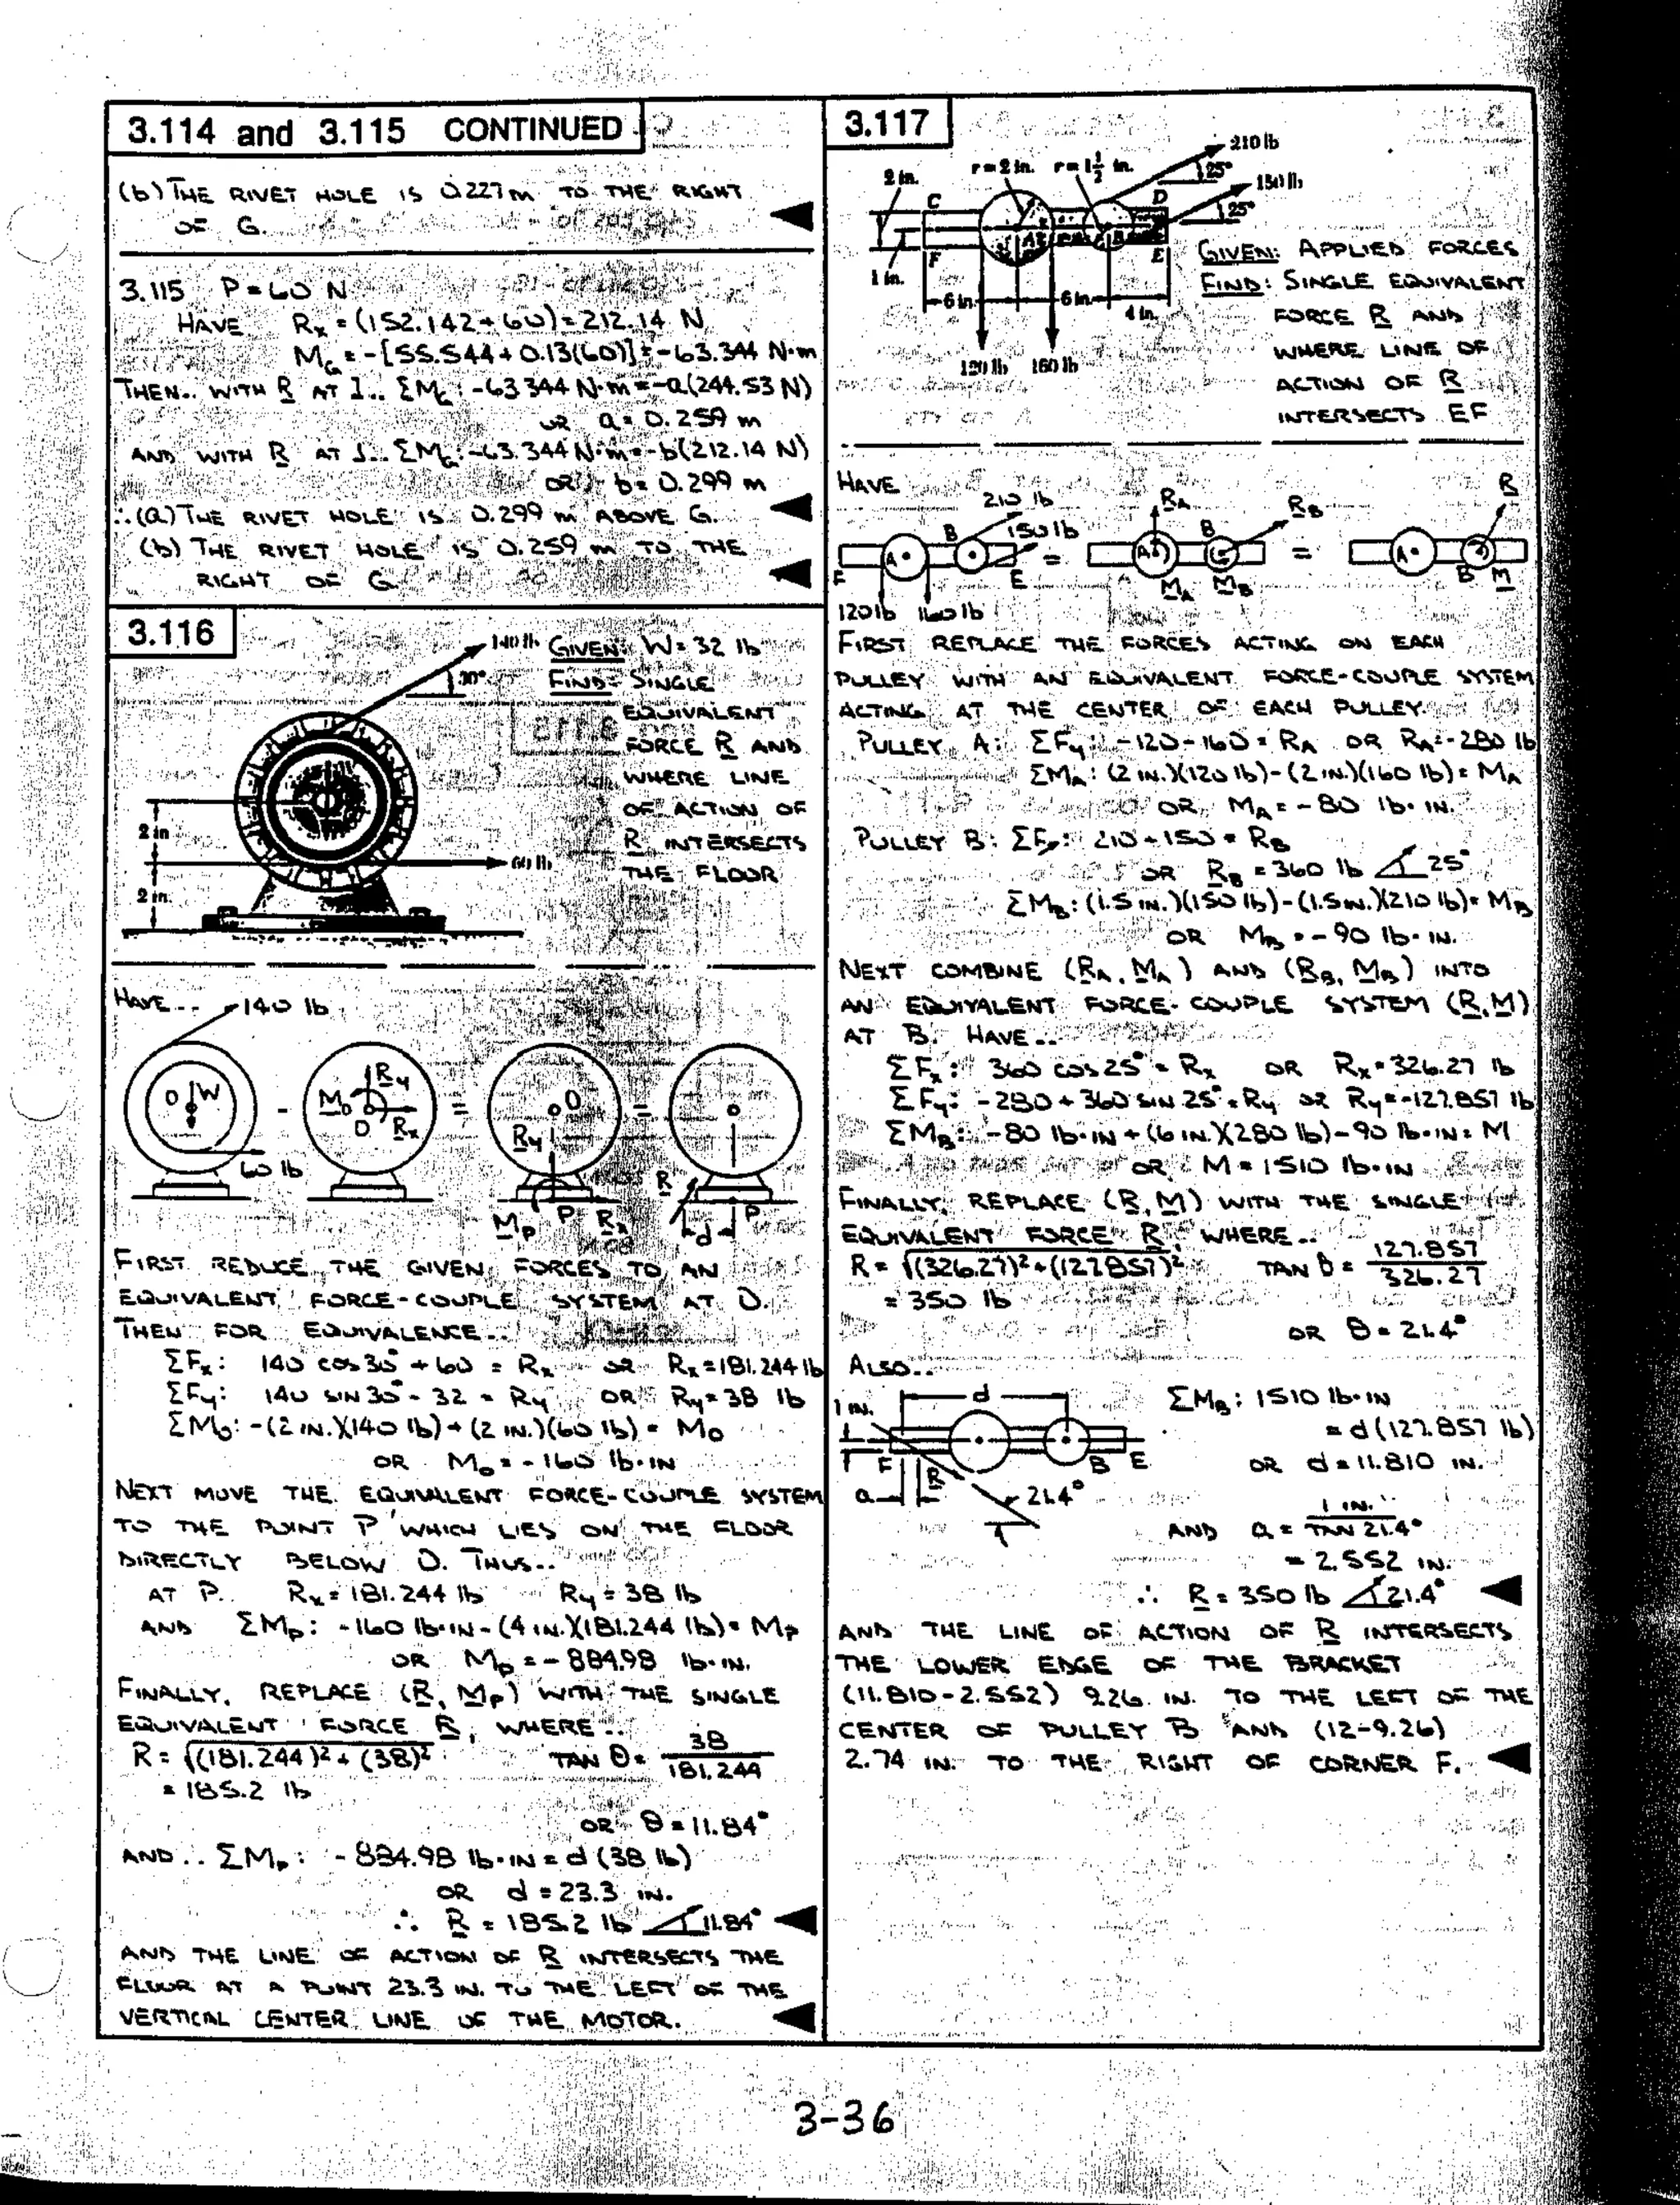 3.114 and 3.115 CONTINUED
(b) THE RIVET HOLE IS 0.227 m TO THE RIGHT
OF G.
3.115 P = 60 N
HAVE Rx = (152.142 + 60) = 212.14 N
MG = -[55.544 + 0.13(60)] = -63.344 N·m
THEN.. WITH R AT I.. ΣMG: -63.344 N·m = -a(244.53 N)
OR a = 0.259 m
AND WITH R AT J.. ΣMG: -63.344 N·m = -b(212.14 N)
OR b = 0.299 m
∴ (a) THE RIVET HOLE IS 0.299 m ABOVE G.
(b) THE RIVET HOLE IS 0.259 m TO THE
RIGHT OF G.
3.116
140 lb
30°
2 in.
60 lb
2 in.
GIVEN: W = 32 lb
FIND: SINGLE
EQUIVALENT
FORCE R AND
WHERE LINE
OF ACTION OF
R INTERSECTS
THE FLOOR
HAVE... 140 lb
O W
60 lb
-
Mo Ry O Rx
=
O Ry Mp P Rx
=
R d P
FIRST REDUCE THE GIVEN FORCES TO AN
EQUIVALENT FORCE-COUPLE SYSTEM AT O.
THEN FOR EQUIVALENCE..
ΣFx: 140 cos 30° + 60 = Rx OR Rx = 181.244 lb
ΣFy: 140 SIN 30° - 32 = Ry OR Ry = 38 lb
ΣMo: -(2 IN.)(140 lb) + (2 IN.)(60 lb) = Mo
OR Mo = -160 lb·IN
NEXT MOVE THE EQUIVALENT FORCE-COUPLE SYSTEM
TO THE POINT P WHICH LIES ON THE FLOOR
DIRECTLY BELOW O. THUS..
AT P.. Rx = 181.244 lb Ry = 38 lb
AND ΣMp: -160 lb·IN - (4 IN.)(181.244 lb) = Mp
OR Mp = -884.98 lb·IN.
FINALLY, REPLACE (R, Mp) WITH THE SINGLE
EQUIVALENT FORCE R, WHERE..
R = √(181.244)² + (38)² TAN θ = 38/181.244
= 185.2 lb
OR θ = 11.84°
AND.. ΣMp: -884.98 lb·IN = d (38 lb)
OR d = 23.3 IN.
∴ R = 185.2 lb 11.84°
AND THE LINE OF ACTION OF R INTERSECTS THE
FLOOR AT A POINT 23.3 IN. TO THE LEFT OF THE
VERTICAL CENTER LINE OF THE MOTOR.
3.117
210 lb
25°
150 lb
25°
r = 2 in. r = 1 1/2 in.
2 in.
C D
A B
F E
1 in.
6 in. 6 in. 4 in.
120 lb 160 lb
GIVEN: APPLIED FORCES
FIND: SINGLE EQUIVALENT
FORCE R AND
WHERE LINE OF
ACTION OF R
INTERSECTS EF
HAVE
210 lb
150 lb
A B
F E
120 lb 160 lb
=
RA RB
A B
MA MB
=
R
A B M
FIRST REPLACE THE FORCES ACTING ON EACH
PULLEY WITH AN EQUIVALENT FORCE-COUPLE SYSTEM
ACTING AT THE CENTER OF EACH PULLEY.
PULLEY A: ΣFy: -120 - 160 = RA OR RA = -280 lb
ΣMA: (2 IN.)(120 lb) - (2 IN.)(160 lb) = MA
OR MA = -80 lb·IN.
PULLEY B: ΣF: 210 + 150 = RB
OR RB = 360 lb 25°
ΣMB: (1.5 IN.)(150 lb) - (1.5 IN.)(210 lb) = MB
OR MB = -90 lb·IN.
NEXT COMBINE (RA, MA) AND (RB, MB) INTO
AN EQUIVALENT FORCE-COUPLE SYSTEM (R, M)
AT B. HAVE..
ΣFx: 360 cos 25° = Rx OR Rx = 326.27 lb
ΣFy: -280 + 360 SIN 25° = Ry OR Ry = -127.857 lb
ΣMB: -80 lb·IN + (6 IN.)(280 lb) - 90 lb·IN = M
OR M = 1510 lb·IN
FINALLY, REPLACE (R, M) WITH THE SINGLE
EQUIVALENT FORCE R, WHERE..
R = √(326.27)² + (127.857)² TAN θ = 127.857/326.27
= 350 lb
OR θ = 21.4°
ALSO..
1 IN.
d
F R B E
a 21.4°
ΣMB: 1510 lb·IN
= d (127.857 lb)
OR d = 11.810 IN.
AND a = 1 IN./TAN 21.4°
= 2.552 IN.
∴ R = 350 lb 21.4°
AND THE LINE OF ACTION OF R INTERSECTS
THE LOWER EDGE OF THE BRACKET
(11.810-2.552) 9.26 IN. TO THE LEFT OF THE
CENTER OF PULLEY B AND (12-9.26)
2.74 IN. TO THE RIGHT OF CORNER F.
3-36